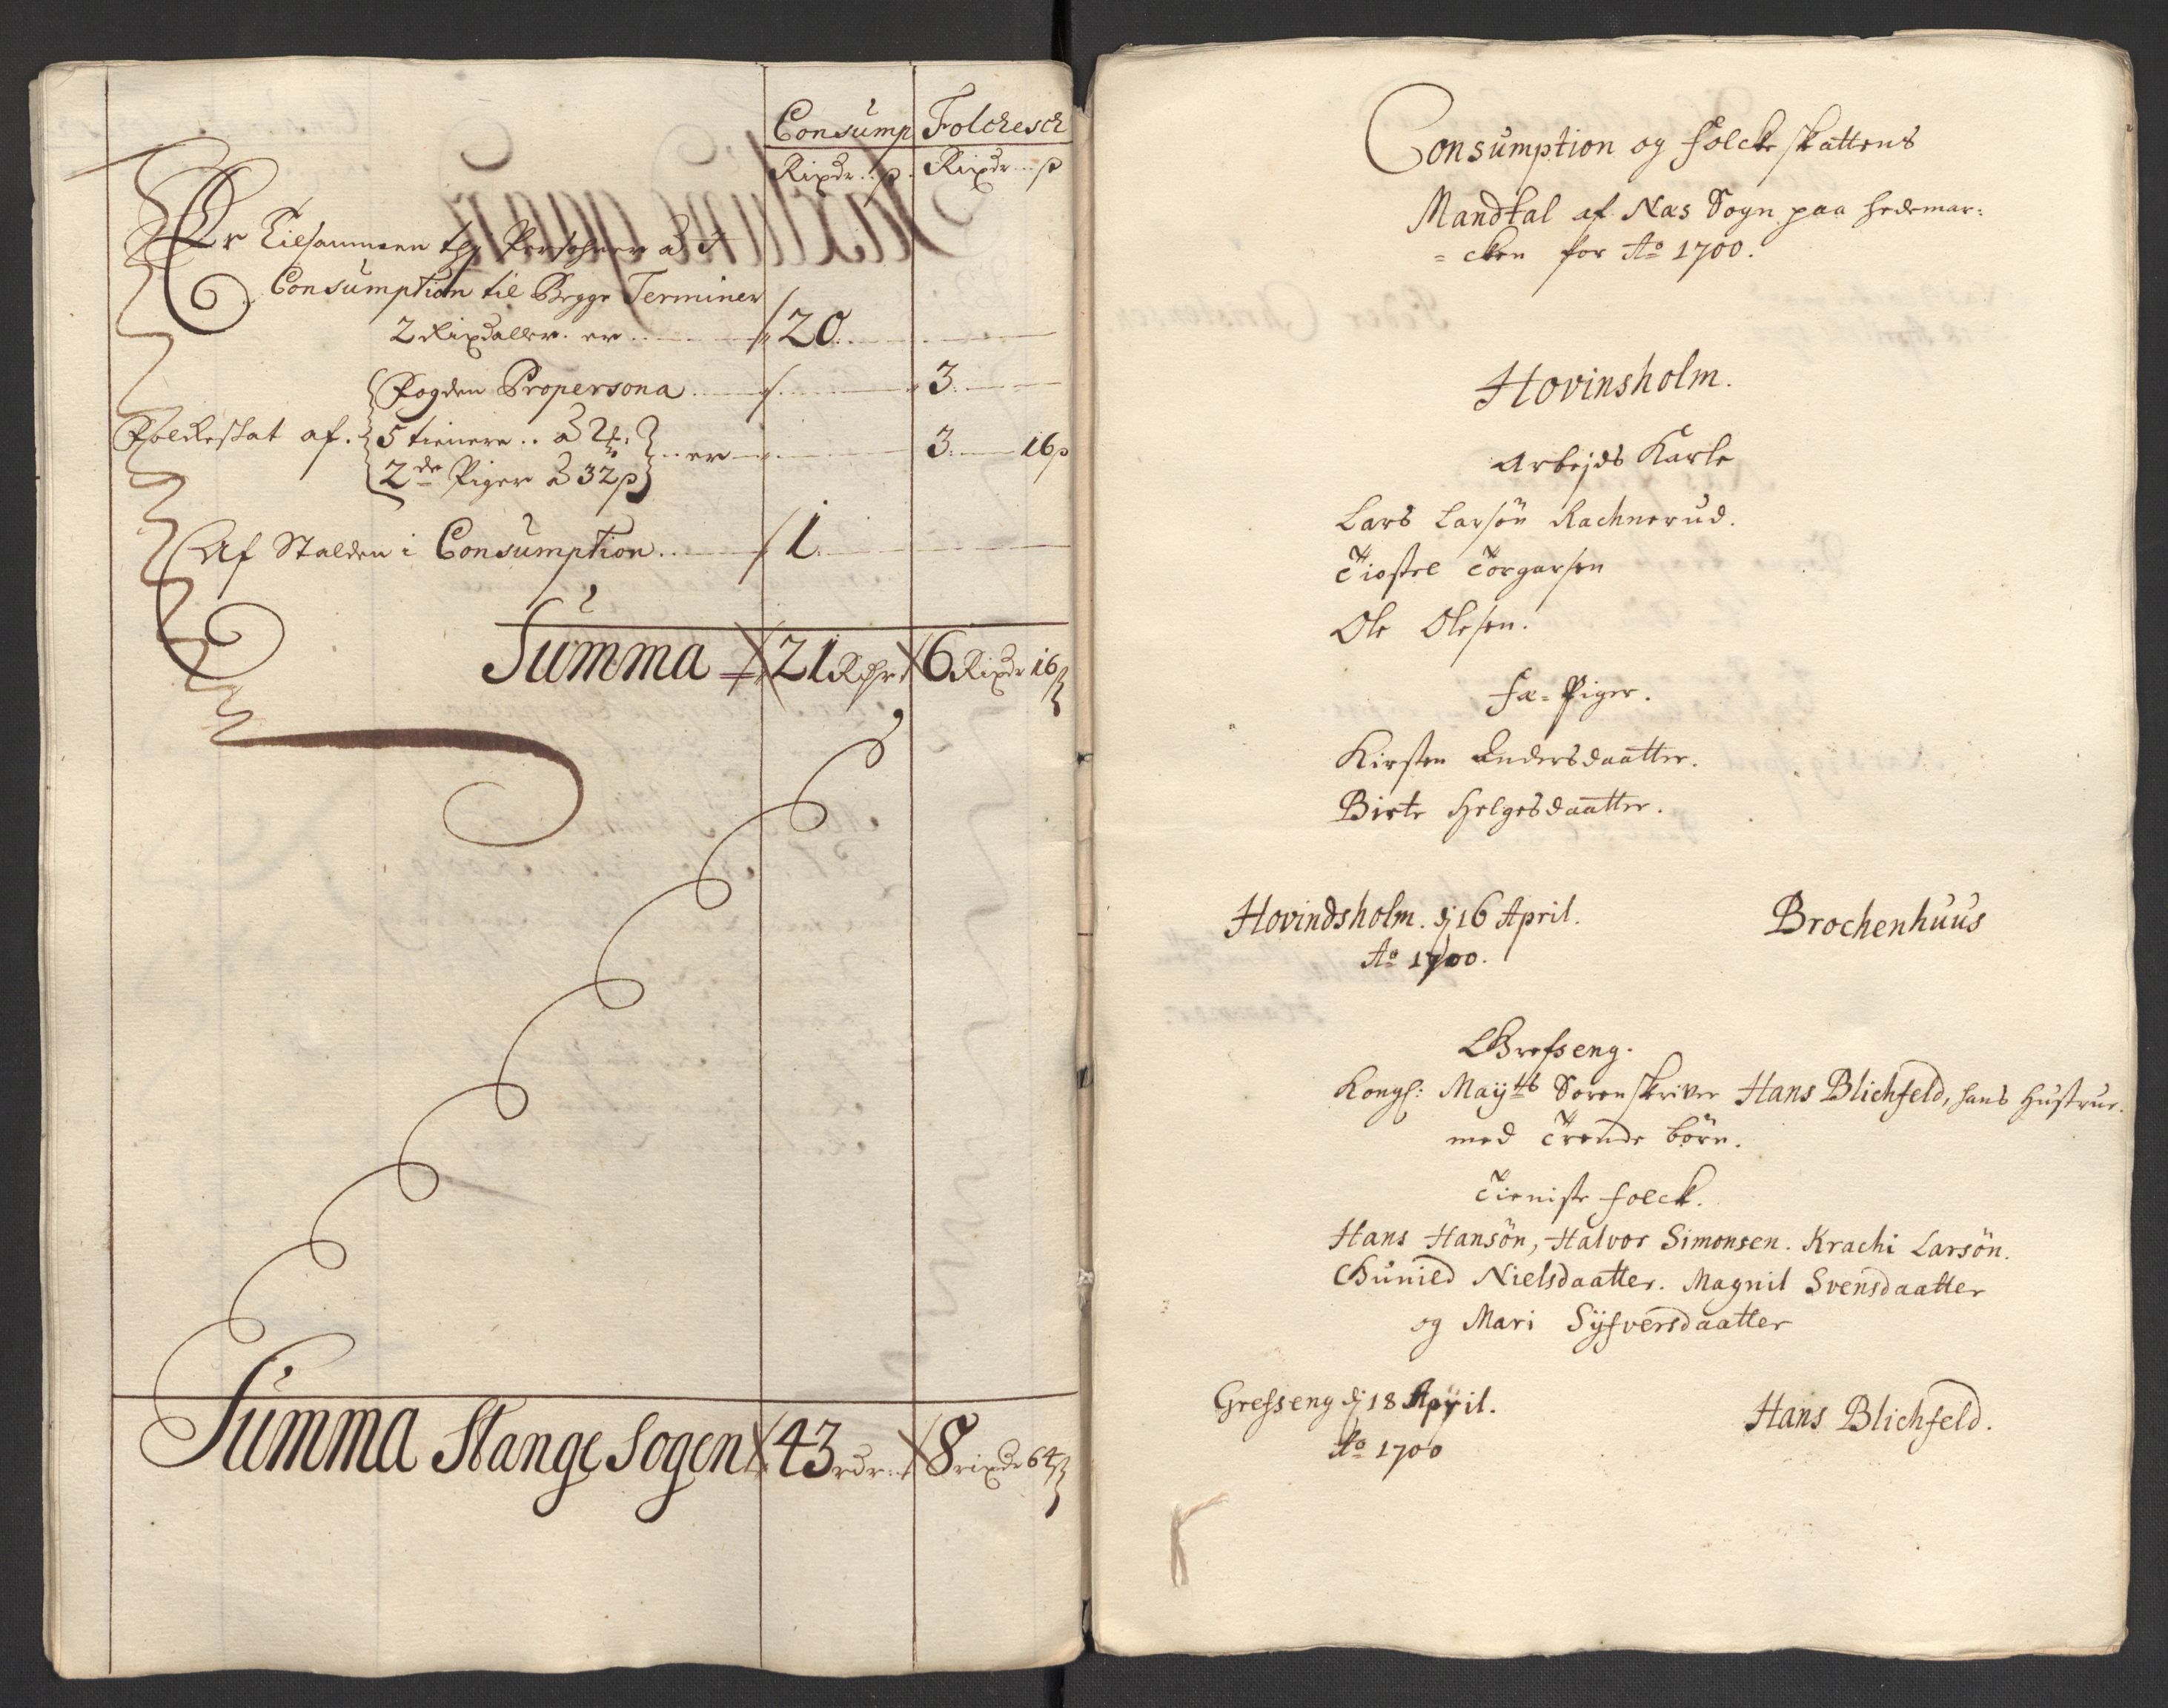 Consump Folckesch
Rixdr. ß. Rixdr. ß
Er Tilsammen Persohner a
Consumption til Begge Terminer
2 Rixdaller. er 20
Fogden Propersona 3
Folkeskat af. 5 tienere .. a er 3 16ß
2de Piger a 32ß
Af Stalden i Consumption 1
Summa 21 6 Rixdr 16ß
Summa Stange Sogen 43 rdr 8 rixdr 64ß
Consumption og Folckeskattens
Mandtal af Næs Sogn paa Hedemar:
= cken for Ao 1700.
Hovinsholm.
Arbejds Karle
Lars Larsön Rachnerud.
Tiostel Torgarsen
Ole Olesen.
Fæ-Piger.
Kirsten Andersdaatter.
Birte Helgesdaatter.
Hovindsholm. dj 16 April.
Ao 1700.
Brochenhuus
Grefseng.
Kongl: Maÿtts Sorenskriver Hans Blichfeld, hans Hustrue.
med Trende börn.
Tieniste folck.
Hans Hansön, Halvor Simonsen. Krachi Larsön.
Gunild Nielsdaatter. Magnil Svensdaatter
og Mari Sÿfversdaatter
Grefseng dj 18 April.
Ao 1700
Hans Blichfeld.